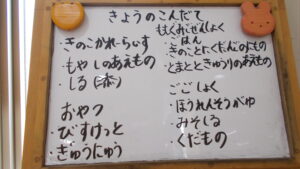 きょうのこんだて
・きのこかれーらいす
・もやしのあえもの
・しる(茶)
おやつ
・びすけっと
・ぎゅうにゅう
ごはん
・きのことにくだんごのにもの
・とまとときゅうりのあえもの
ごごしょく
・ほうれんそうがゆ
・みそしる
・くだもの